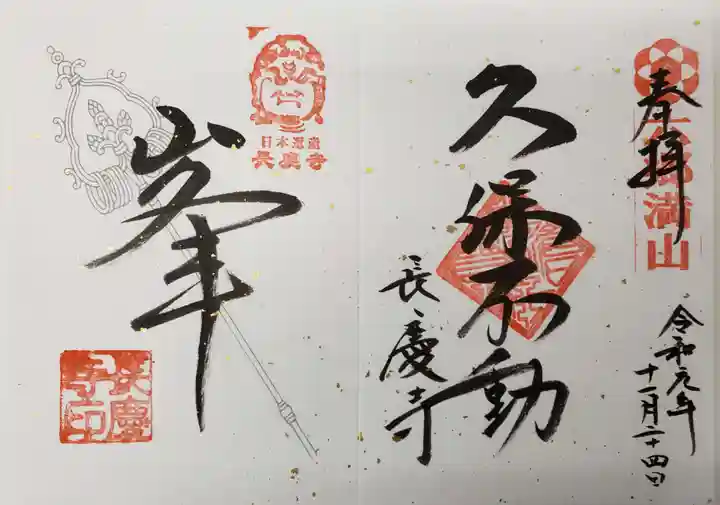 奉拝
満山
令和元年
十一月二十四日
久保不動
長慶寺
峯
日本遺産
長慶寺
長慶
寺印